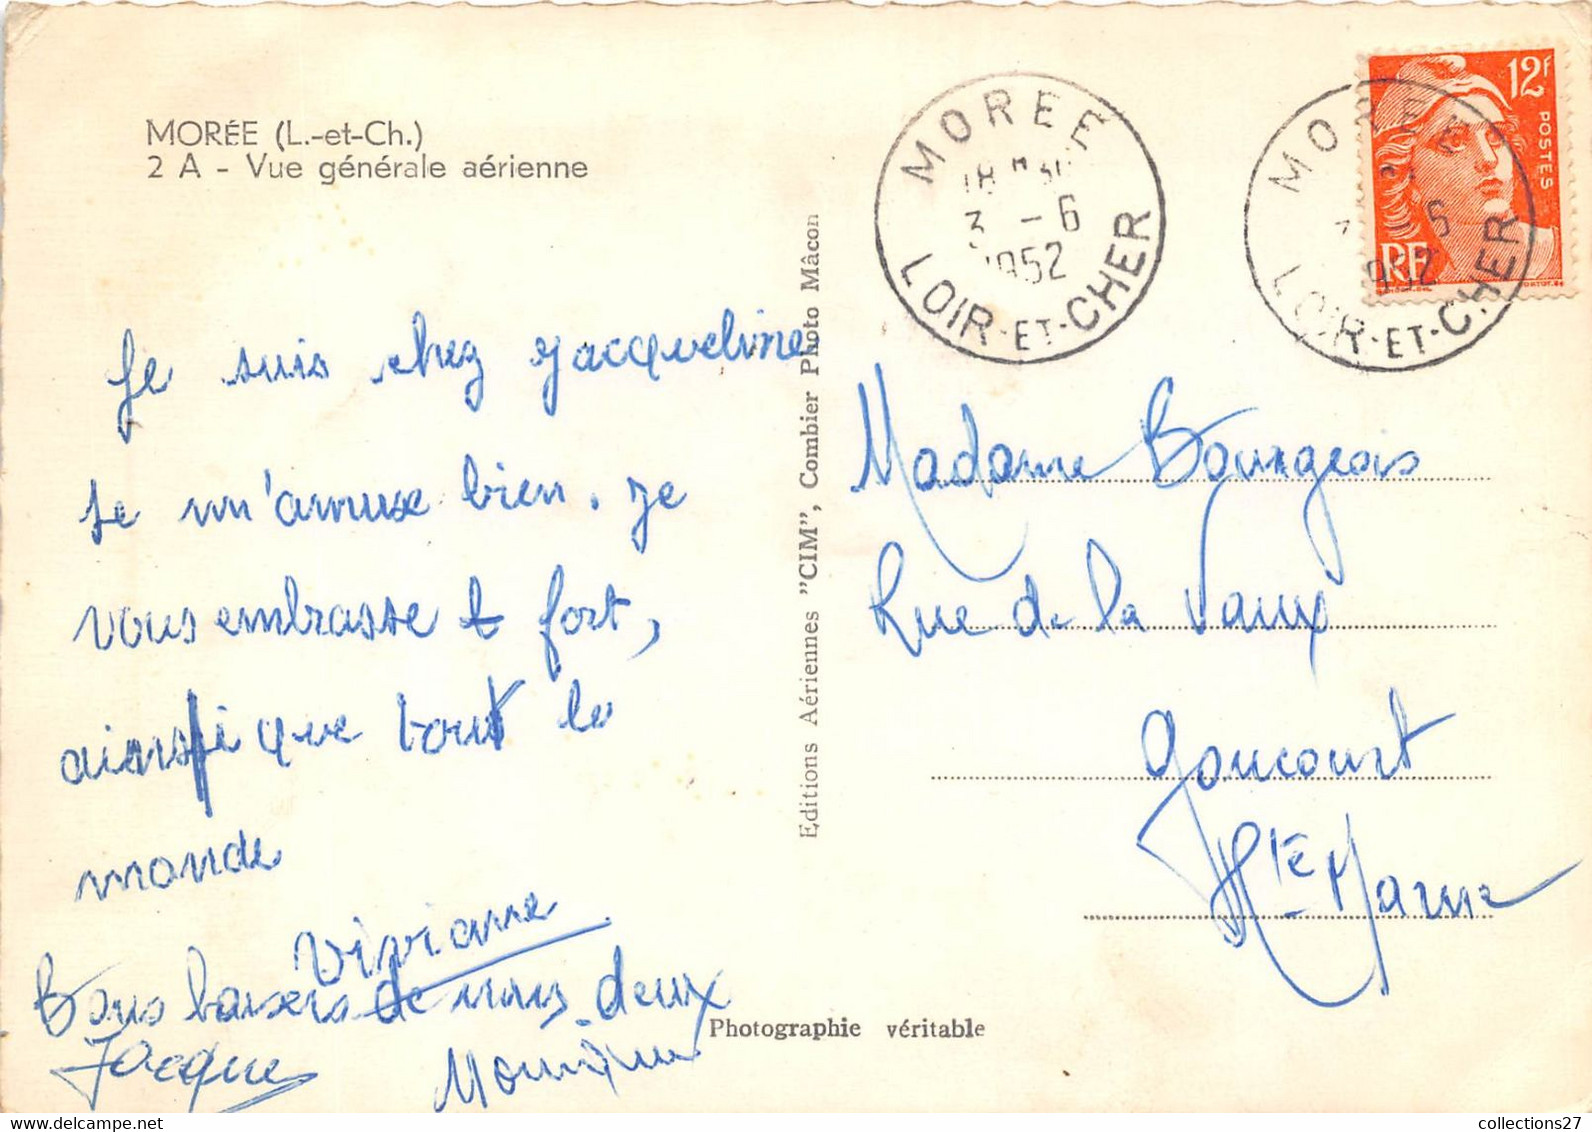 MORÉE (L.-et-Ch.)
2 A - Vue générale aérienne
Je suis chez Jacqueline
Je m'amuse bien. Je
vous embrasse fort,
ainsi que tout le
monde
Vivianne
Bons baisers de nous deux
Jacques Monique
Editions Aériennes "CIM", Combier Photo Mâcon
Photographie véritable
MOREE
3 - 6
1952
LOIR-ET-CHER
MOREE
- 6
1952
LOIR-ET-CHER
12F
POSTES
RF
Madame Bourgeois
Rue de la Vaux
Goncourt
Hte Marne
collections27